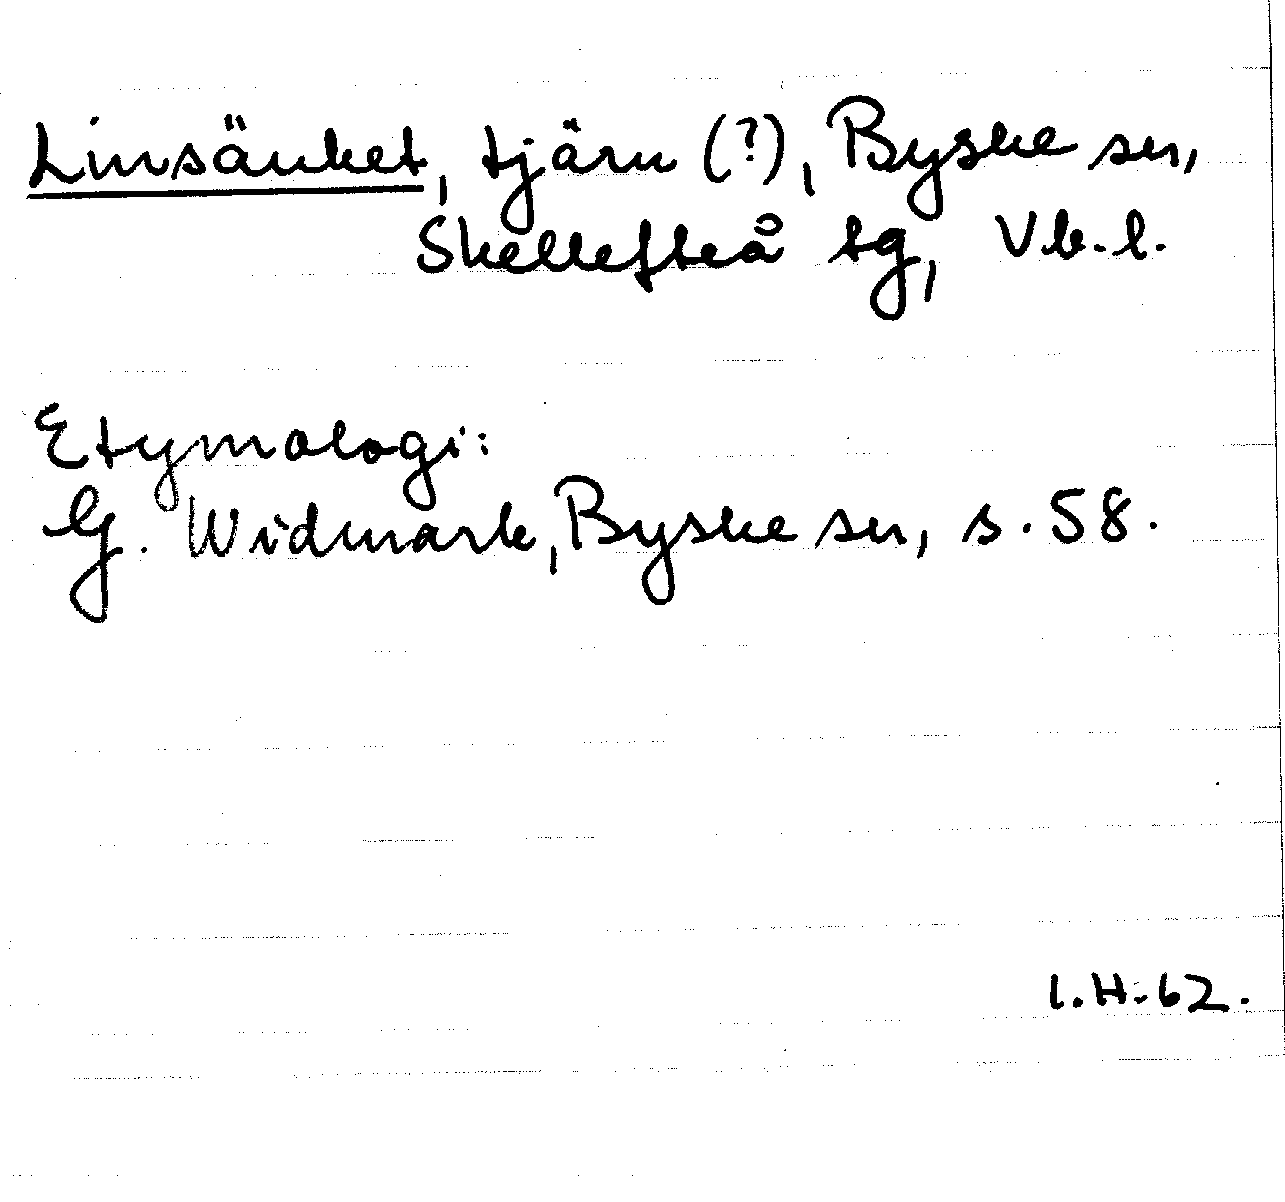 Linsänket, tjärn (?), Byske sn,
Skellefteå tg, Vb. l.
Etymologi:
G. Widmark, Byske sn, s. 58.
I.H. 62.